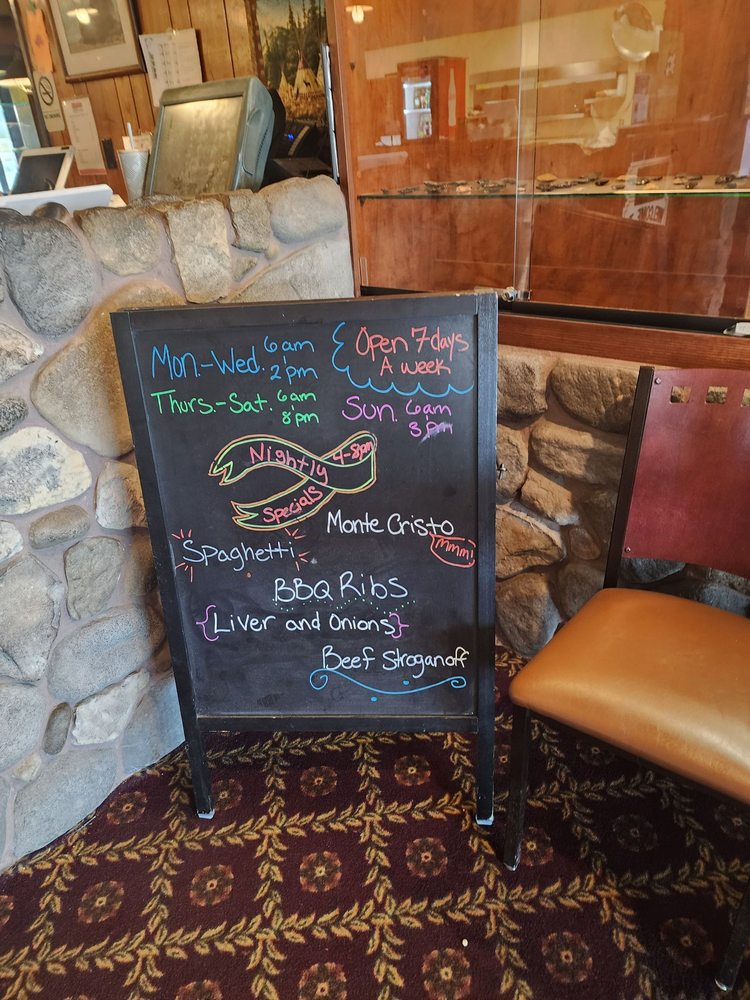 Mon.-Wed. 6am
2pm
Open 7 days
A week
Thurs.-Sat. 6am
8pm
Sun. 6am
3pm
Nightly 4-8pm
Specials
Monte Cristo
mmm!
Spaghetti
BBQ Ribs
{Liver and Onions}
Beef Stroganoff